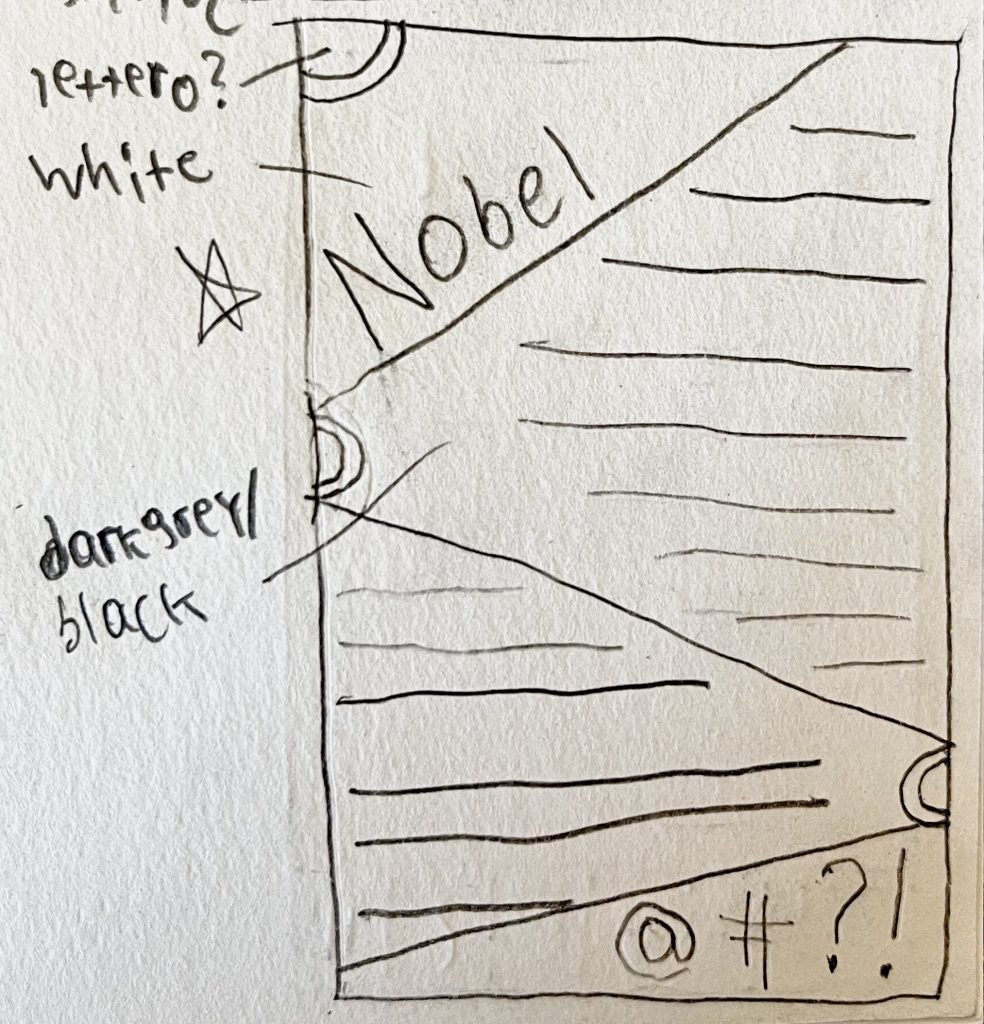 lettero?
white
Nobel
darkgrey/
black
@ # ? !